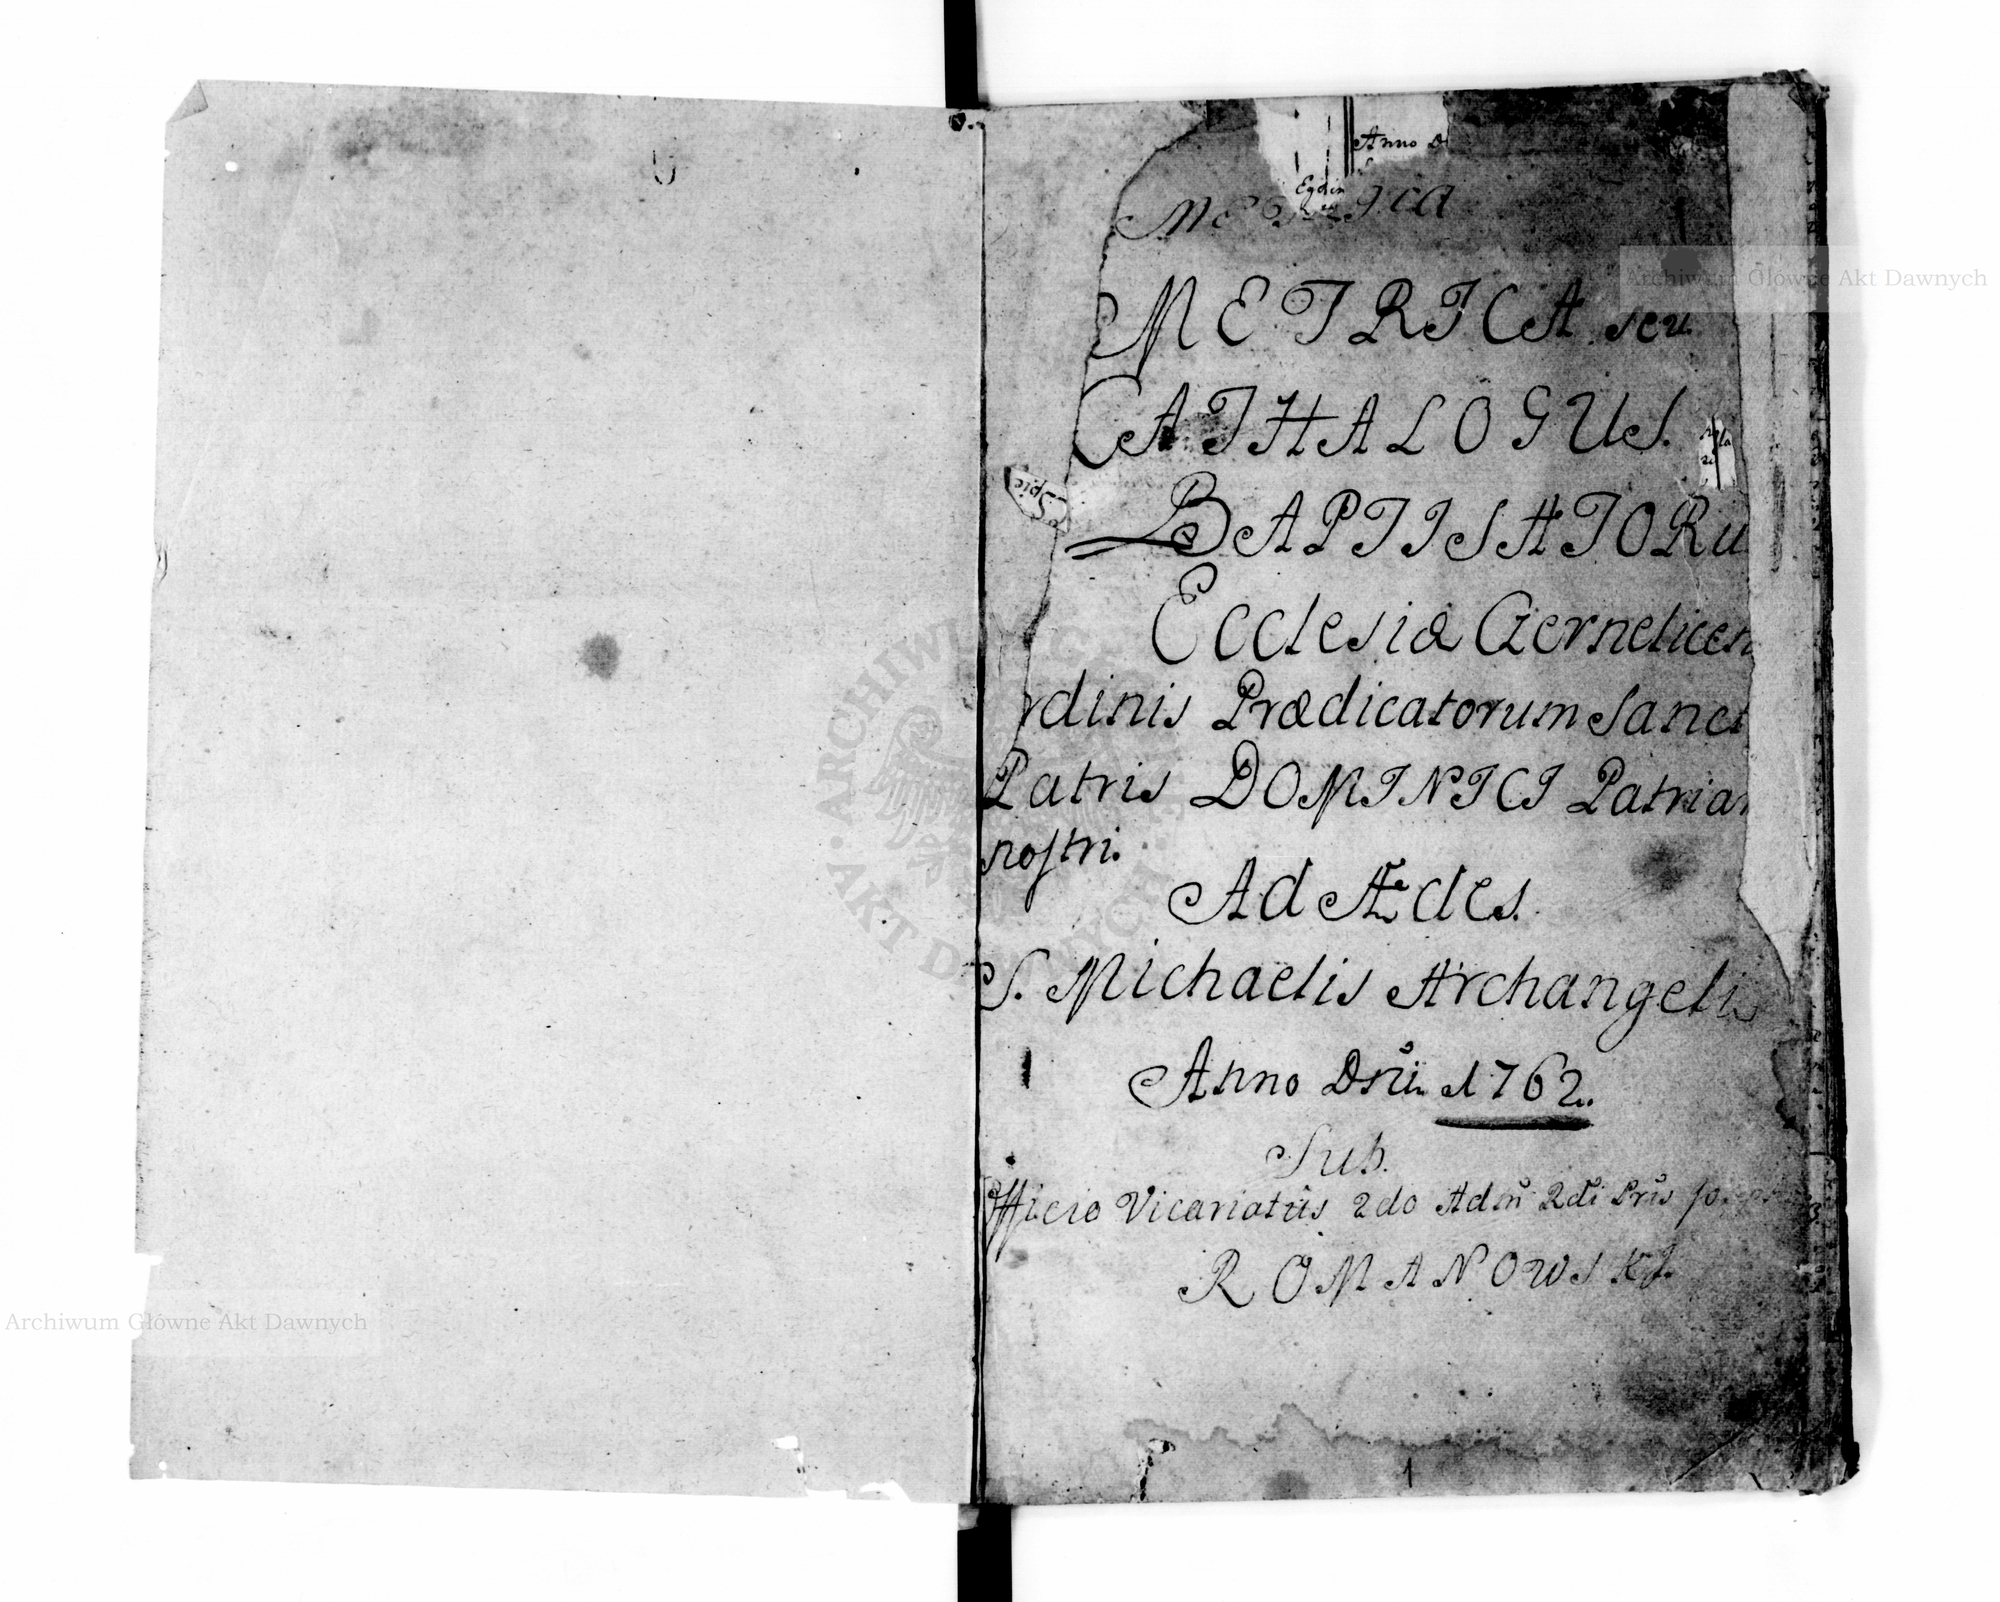 Anno D
Metrica
METRICA seu
CATHALOGUS.
BAPTISATORU
Ecclesiæ Czernelicen
rdinis Prædicatorum Sanct
Patris DOMINICI Patriar
nostri.
Ad Ædes.
S. Michaelis Archangeli
Anno Dñi 1762.
Sub.
Officio Vicariatûs 2do Adm̃ Rdi Pris
ROMANOWSKI.
1
Archiwum Główne Akt Dawnych
Archiwum Główne Akt Dawnych
ARCHIWUM GŁÓWNE AKT DAWNYCH